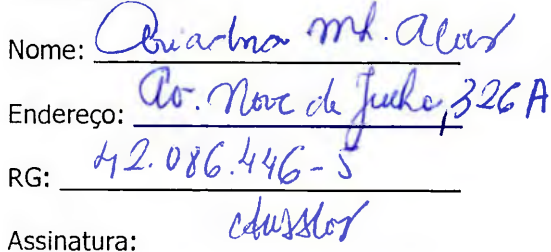 Nome: Mª.
Endereço: Av. Nove de Julho, 326 A
RG: 42.086.446-5
Assinatura: